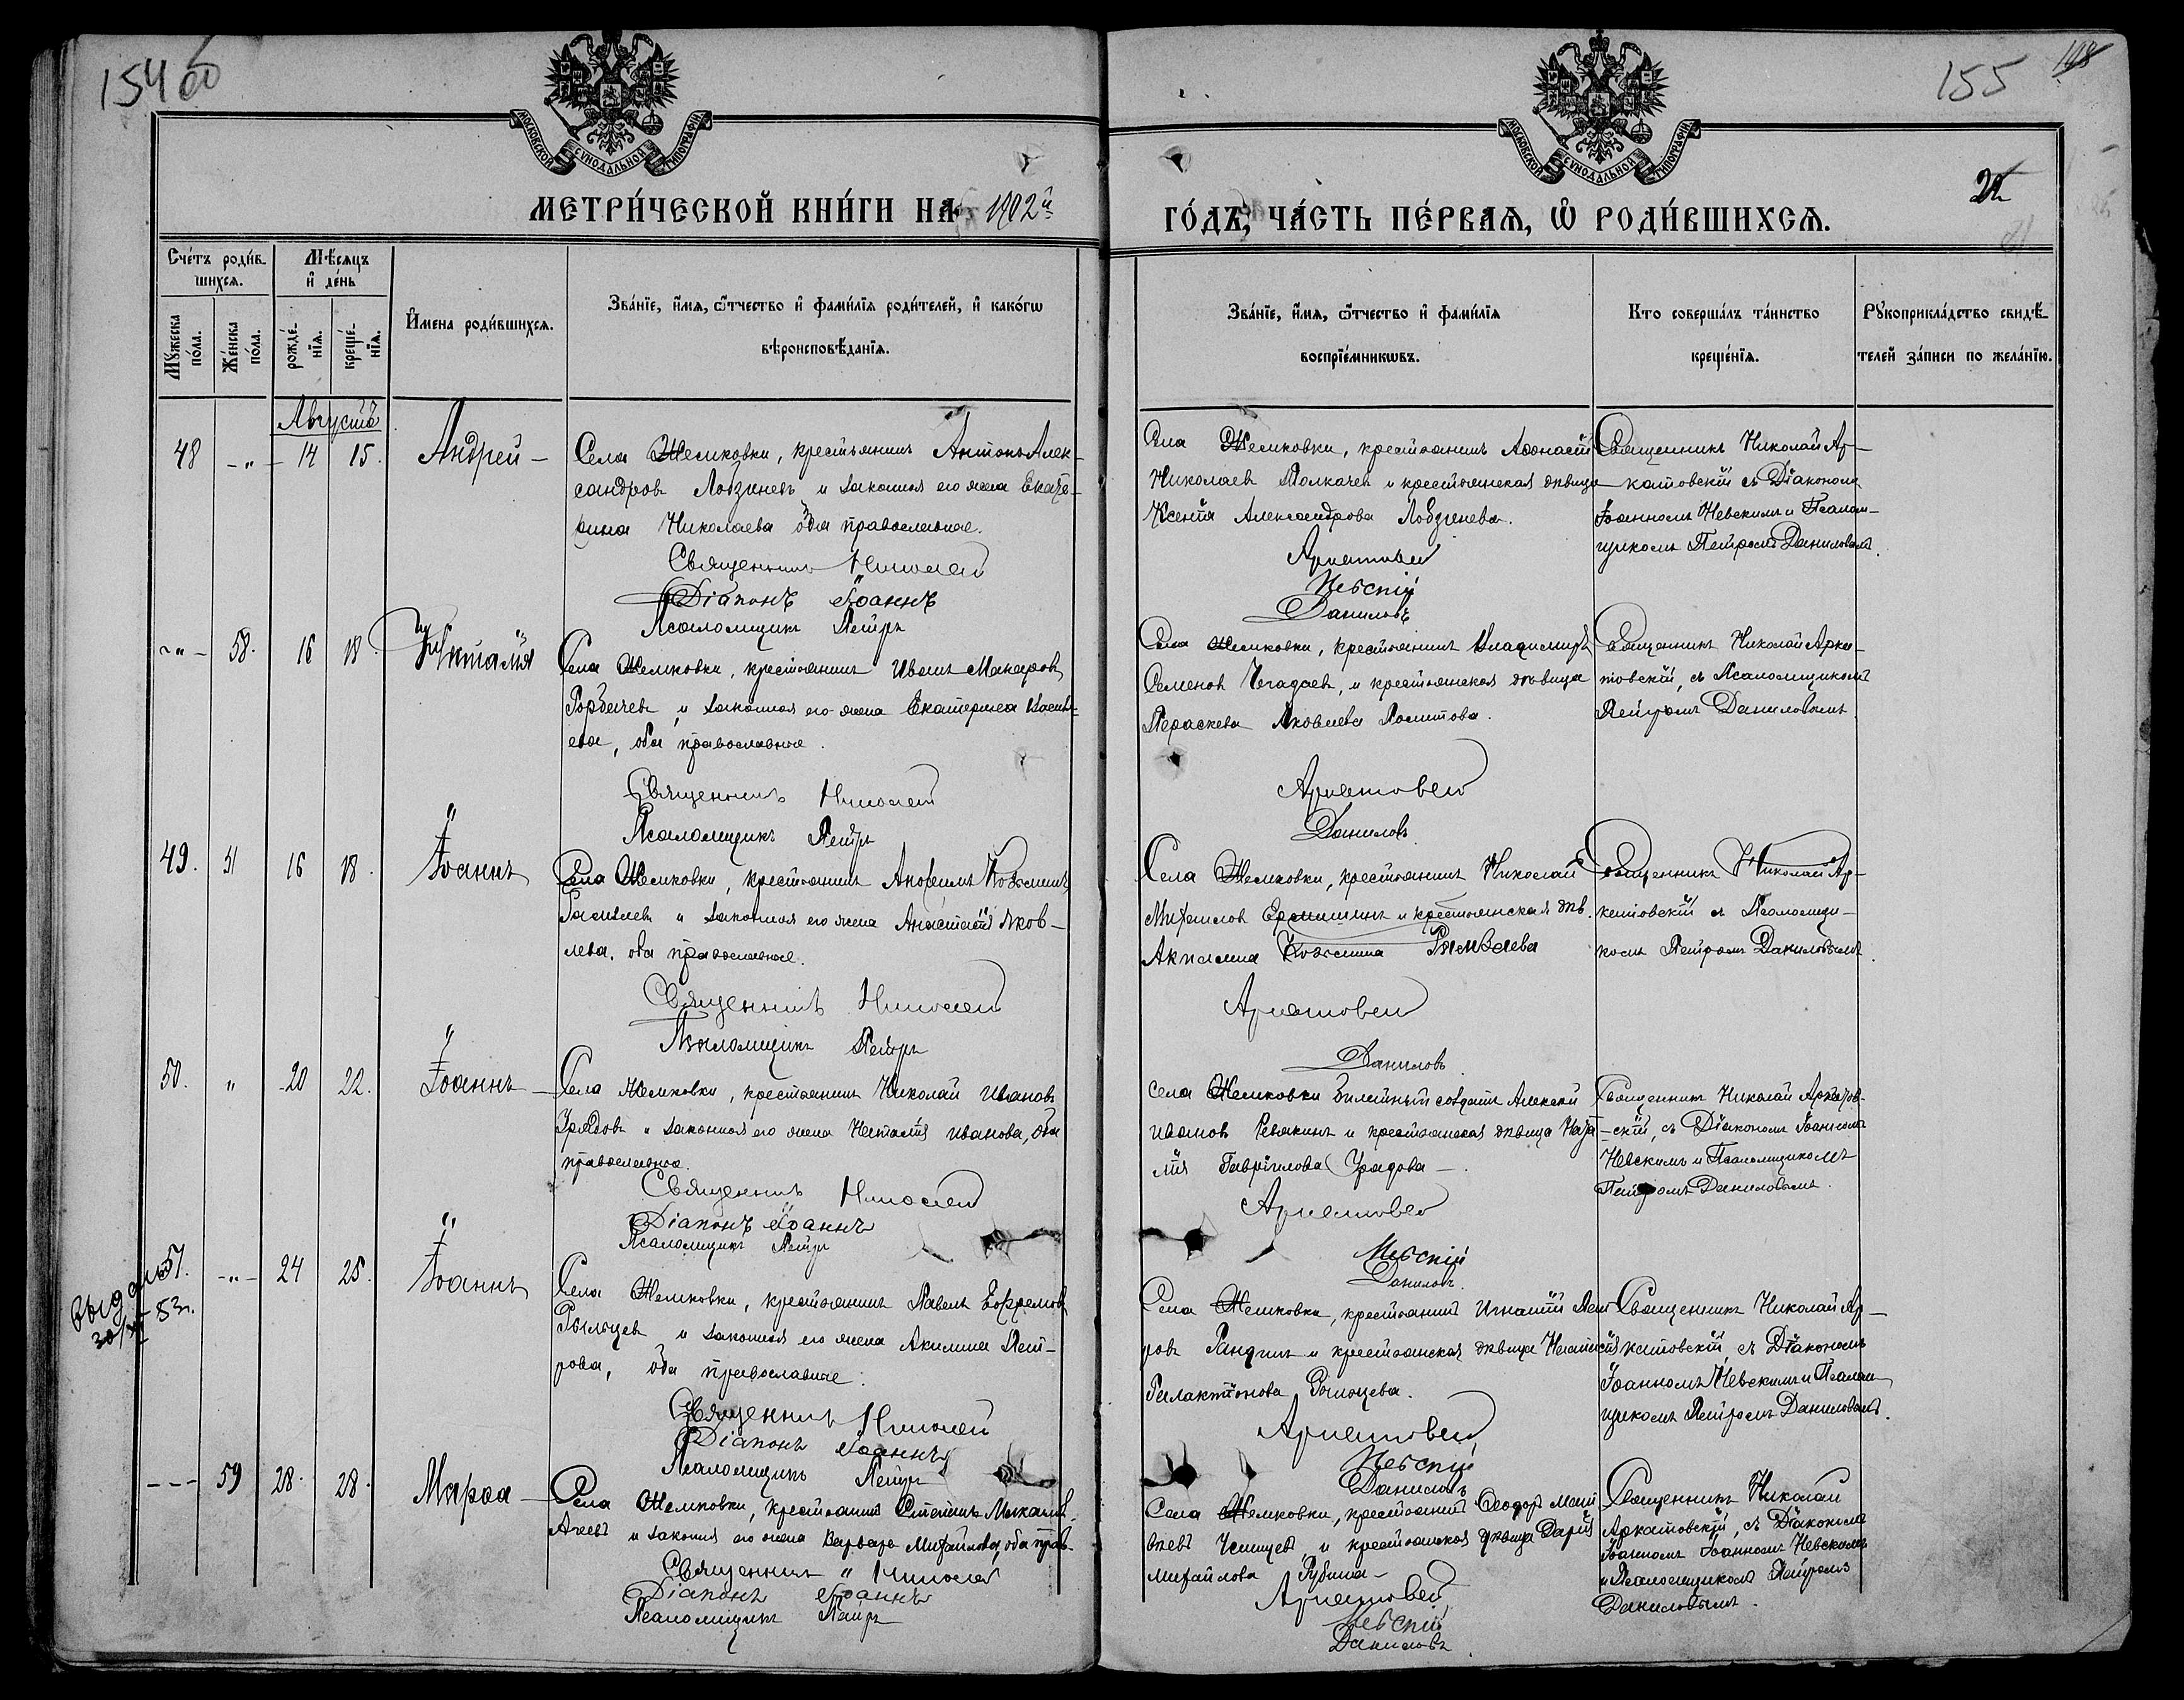 154
155
МОСКОВСКОЙ СѴНОДАЛЬНОЙ ТИПОГРАФІИ
МОСКОВСКОЙ СѴНОДАЛЬНОЙ ТИПОГРАФІИ
МЕТРИ́ЧЕСКОЙ КНИ́ГИ НА 1902й
ГО́ДЪ, ЧА́СТЬ ПЕ́РВАѦ, Ѡ РОДИ́ВШИХСѦ.
Сче́тъ роди́вшихсѧ.
Мѣ́сѧцъ и҆ де́нь
Мꙋ́жеска по́ла.
Же́нска по́ла.
рожде́нїѧ.
креще́нїѧ.
И҆мена роди́вшихсѧ.
Зва́нїе, и҆́мѧ, ѻ҆́тчество и҆ фами́лїѧ роди́телей, и҆ како́гѡ
вѣроисповѣ́данїѧ.
Зва́нїе, и҆́мѧ, ѻ҆́тчество и҆ фами́лїѧ
воспрїе́мникѡвъ.
Кто соверша́лъ та́инство
креще́нїѧ.
Рꙋкоприкла́дство свидѣ́-
телей за́писи по жела́нїю.
Августъ
48 -"- 14 15. Андрей -
Села Жемковки, крестьянинъ Антонъ Алек-
сандровъ Лобзиневъ и законная его жена Екате-
рина Николаева оба православные.
Священникъ Николай
Діаконъ Іоаннъ
Псаломщикъ Петръ
Села Жемковки, крестьянинъ Аѳонасій
Николаевъ Толкачевъ и крестьянская дѣвица
Ксенія Александрова Лобзинева.
Аркатовскій
Невскій
Даниловъ
Священникъ Николай Ар-
катовскій съ Діакономъ
Іоанномъ Невскимъ и Псалом-
щикомъ Петромъ Даниловымъ.
-"- 58. 16 18. Наталія
Села Жемковки, крестьянинъ Иванъ Макаровъ
Горбачевъ и законная его жена Екатерина Василь-
ева, оба православные.
Священникъ Николай
Псаломщикъ Петръ
Села Жемковки, крестьянинъ Владимиръ
Семеновъ Чегадаевъ, и крестьянская дѣвица
Параскева Яковлева
Аркатовскій
Даниловъ
Священникъ Николай Арка-
товскій, съ Псаломщикомъ
Петромъ Даниловымъ
49. " 16 18. Іоаннъ
Села Жемковки, крестьянинъ Козьминъ
и законная его жена Анастасія Яков-
лева, оба православные.
Священникъ Николай
Псаломщикъ Петръ
Села Жемковки, крестьянинъ Николай
Михаиловъ и крестьянская дѣв.
Акилина Козьмина
Аркатовскій
Даниловъ
Священникъ Николай Ар-
катовскій съ Псаломщи-
комъ Петромъ Даниловымъ.
50. " 20 22. Іоаннъ -
Села Жемковки, крестьянинъ Николай Ивановъ
Урядовъ и законная его жена Наталія Иванова, оба
православные.
Священникъ Николай
Діаконъ Іоаннъ
Псаломщикъ Петръ
Села Жемковки билетный солдатъ Алексѣй
Ивановъ Ревякинъ и крестьянская дѣвица Ната-
лія Гавріилова Урядова -
Аркатовскій
Невскій
Даниловъ
Священникъ Николай Аркатов-
скій, съ Діакономъ Іоанномъ
Невскимъ и Псаломщикомъ
Петромъ Даниловымъ.
51. -"- 24 25. Іоаннъ
30/XI-53г.
Села Жемковки, крестьянинъ Павелъ Ефремовъ
Рыльцевъ и законная его жена Акилина Пет-
рова, оба православные.
Священникъ Николай
Діаконъ Іоаннъ
Псаломщикъ Петръ
Села Жемковки, крестьянинъ Игнатій Пет-
ровъ Гандинъ и крестьянская дѣвица
Галактіонова Рыльцева.
Аркатовскій
Невскій
Даниловъ
Священникъ Николай Ар-
катовскій, съ Діакономъ
Іоанномъ Невскимъ и Псалом-
щикомъ Петромъ Даниловымъ.
--- 59 28. 28. Марѳа -
Села Жемковки, крестьянинъ
и законная его жена Варвара Михайлова, оба прав.
Священникъ Николай
Діаконъ Іоаннъ
Псаломщикъ Петръ
Села Жемковки, крестьянинъ Ѳеодоръ Мат-
вѣевъ и крестьянская дѣвица Дарія
Михайлова
Аркатовскій
Невскій
Даниловъ
Священникъ Николай
Аркатовскій, съ Діакономъ
Іоанномъ Іоанномъ Невскимъ
и Псаломщикомъ Петромъ
Даниловымъ.